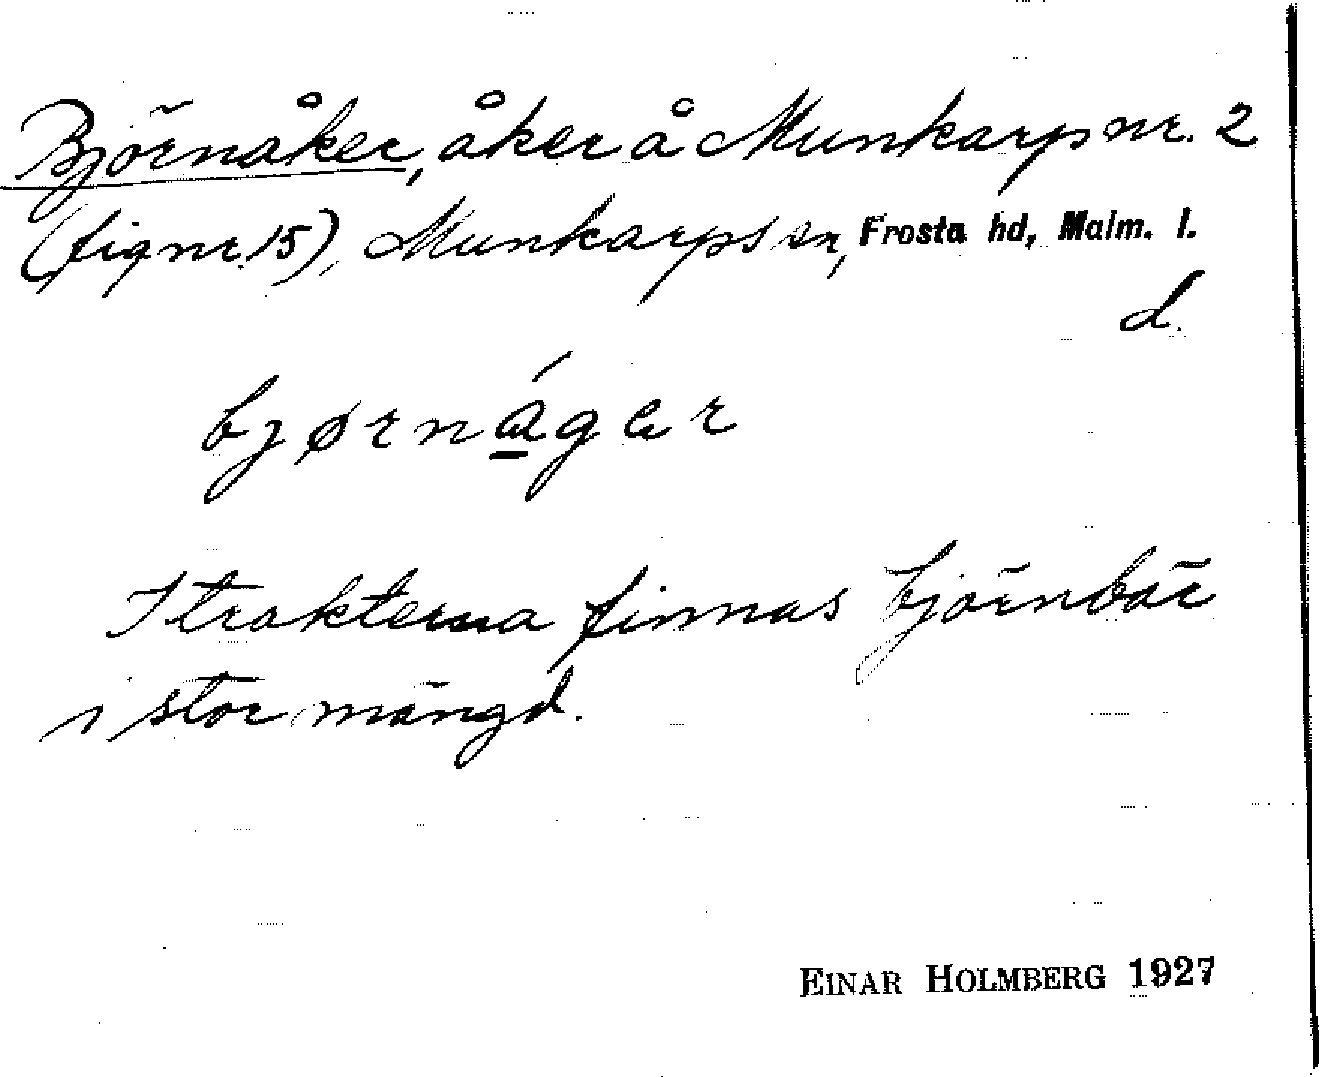 Björnåker, åker å Munkarp nr. 2
(fig nr. 15), Munkarps sn, Frosta hd, Malm. l.
d.
bjørnågær
I trakterna finnas björnbär
i stor mängd.
EINAR HOLMBERG 1927